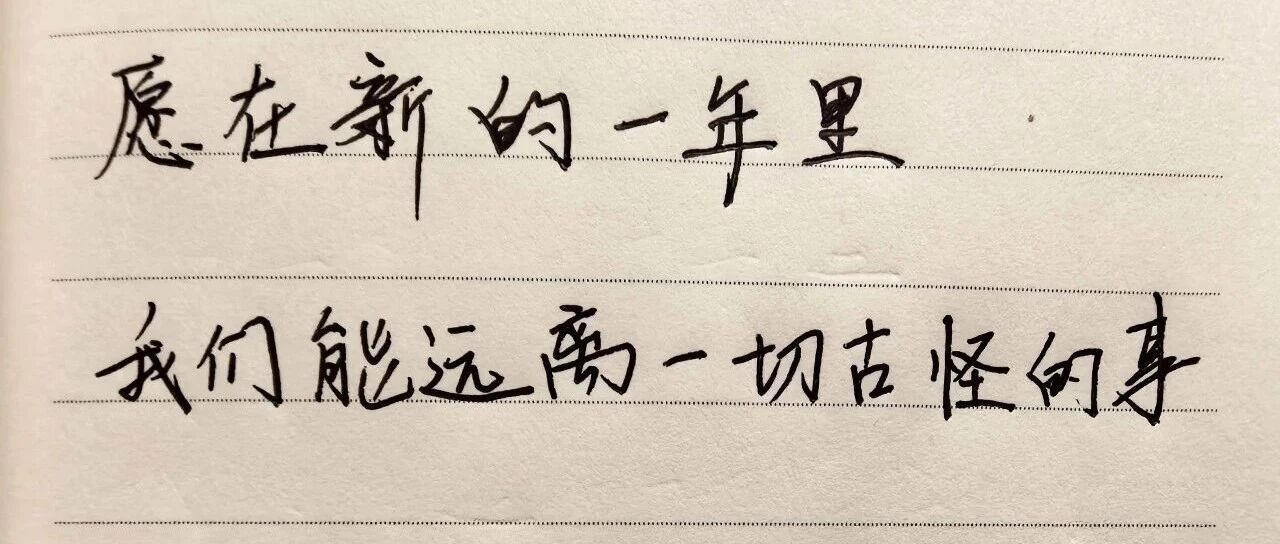 愿在新的一年里
我们能远离一切古怪的事